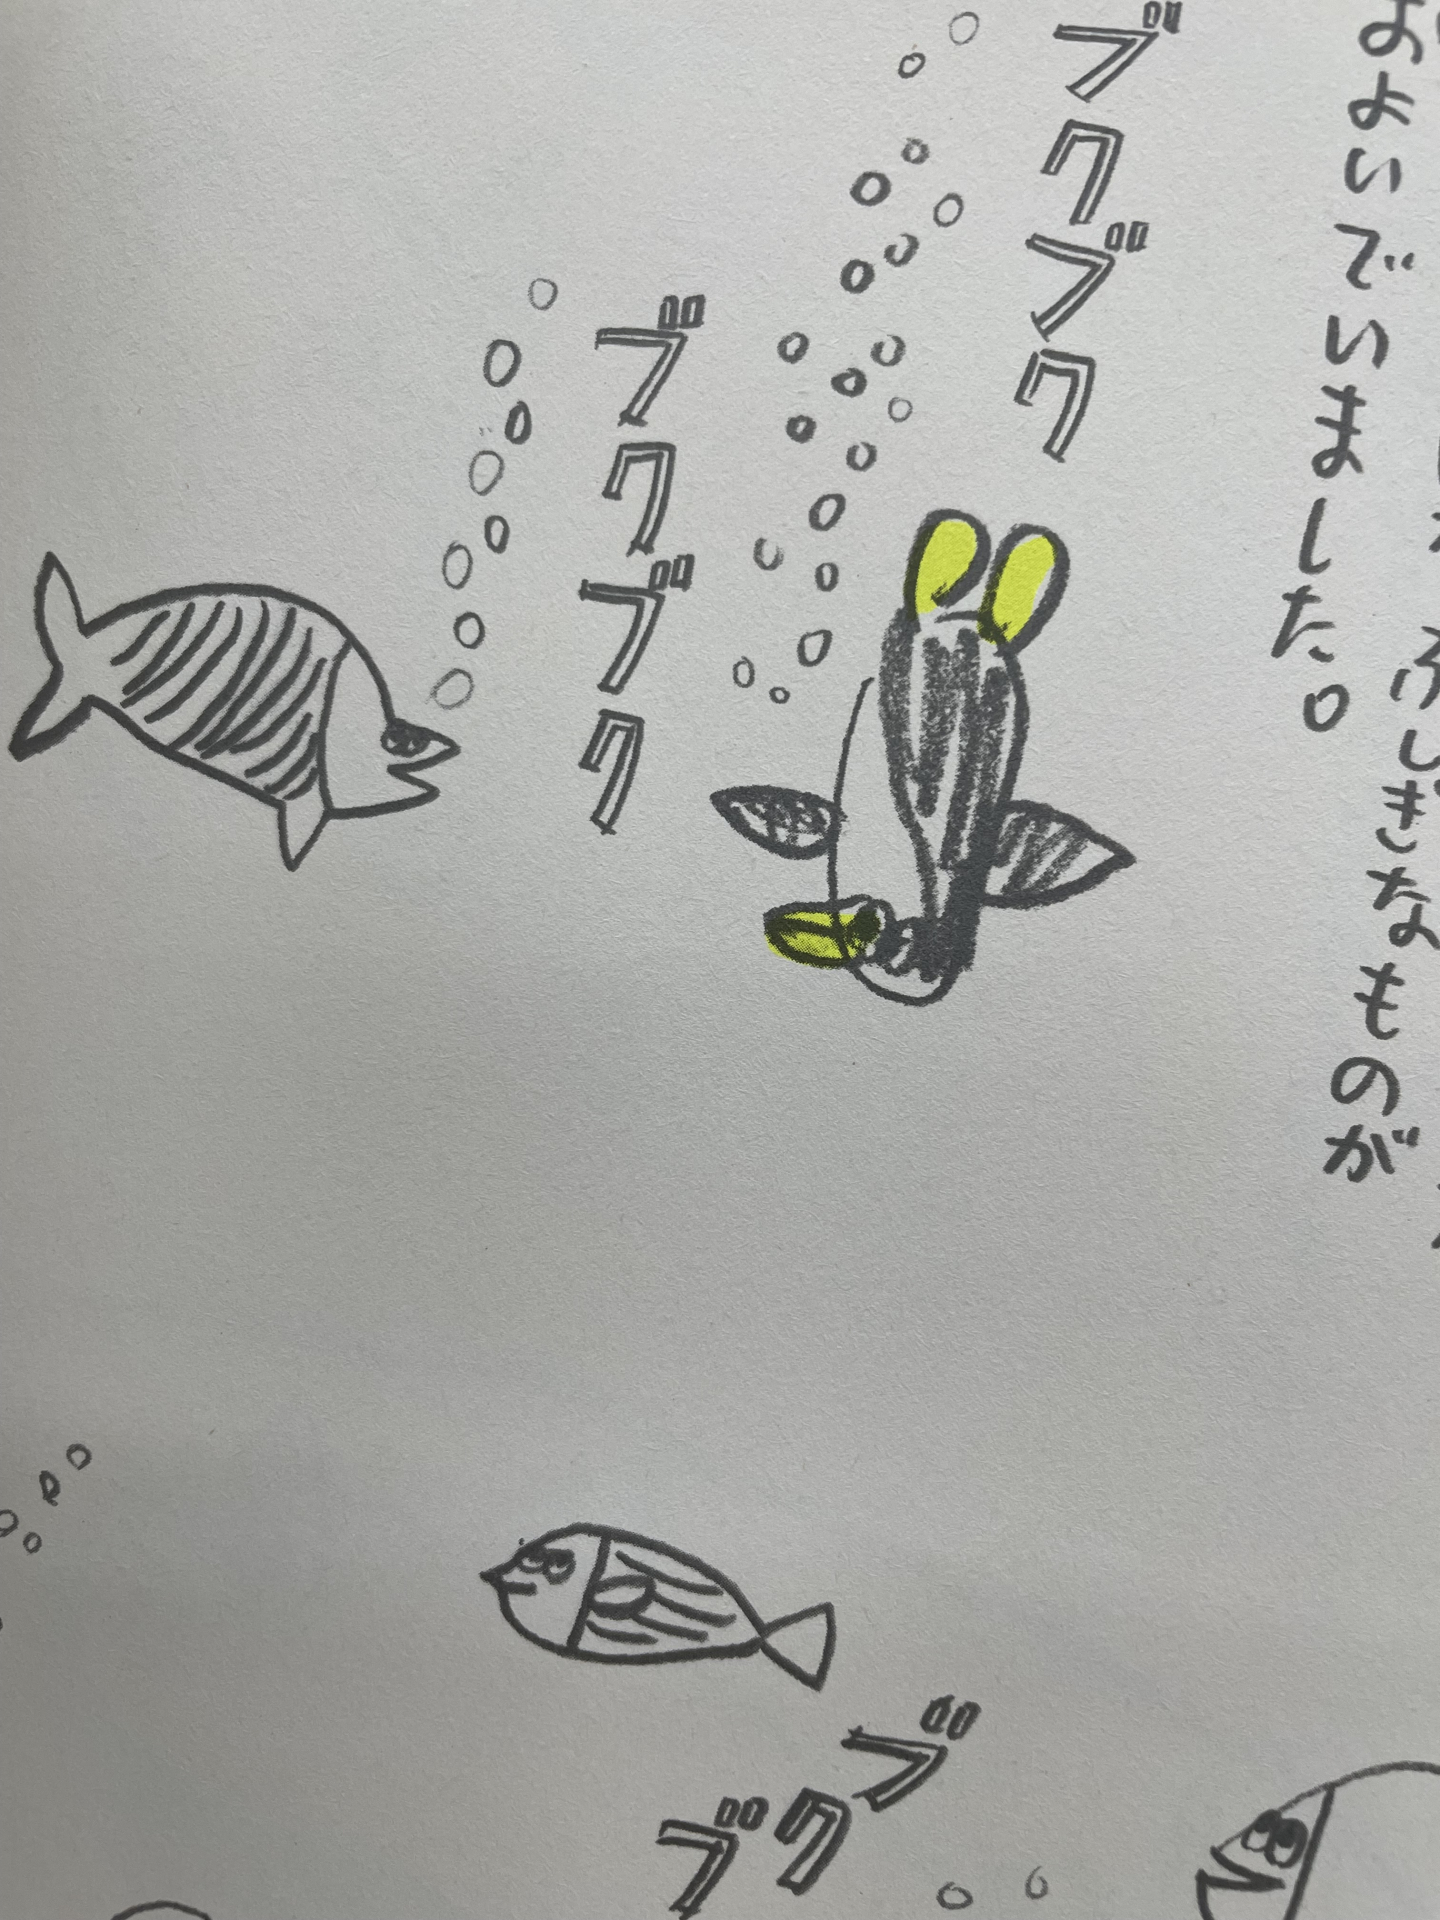 ふしぎなものが
およいでいました。
ブクブク
ブクブク
ブクブ